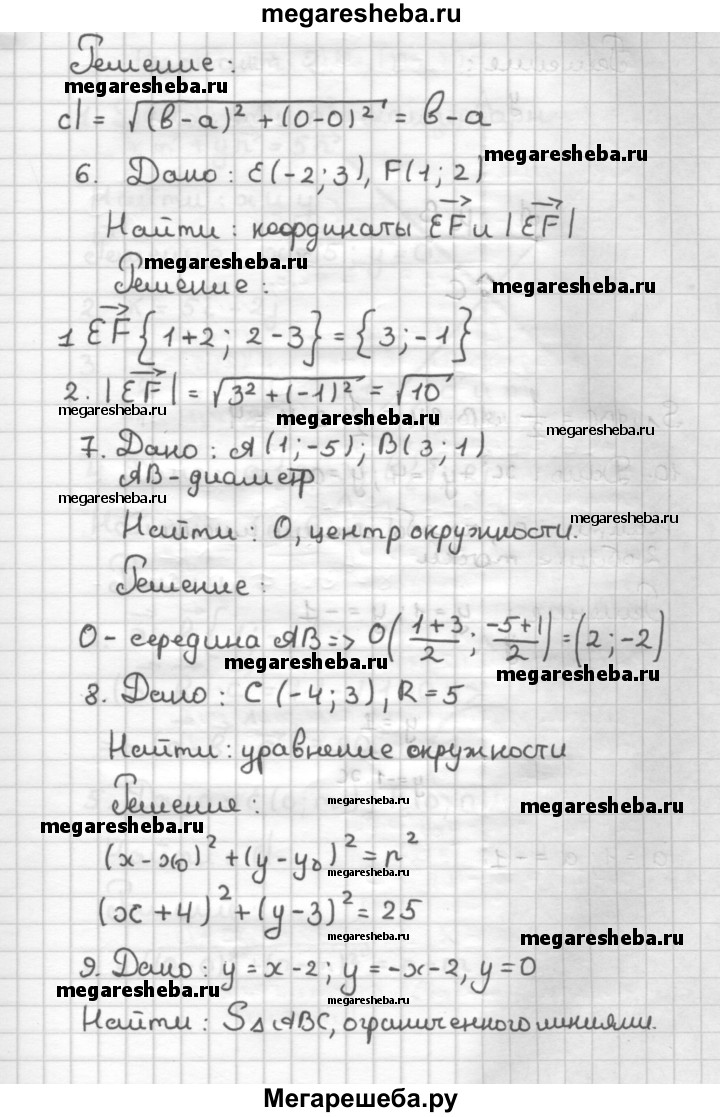 megaresheba.ru
Решение:
megaresheba.ru
d = √((b-a)² + (0-0)²) = b-a
megaresheba.ru
6. Дано: E(-2; 3), F(1; 2)
Найти: координаты EF→ и |EF→|
megaresheba.ru
Решение:
1 EF→ {1+2; 2-3} = {3; -1}
2. |EF→| = √(3² + (-1)²) = √10
megaresheba.ru
megaresheba.ru
megaresheba.ru
7. Дано: A(1; -5); B(3; 1)
AB - диаметр
megaresheba.ru
megaresheba.ru
Найти: O, центр окружности.
Решение:
O - середина AB => O((1+3)/2; (-5+1)/2) = (2; -2)
megaresheba.ru
megaresheba.ru
8. Дано: C (-4; 3), R = 5
Найти: уравнение окружности
Решение:
megaresheba.ru
megaresheba.ru
megaresheba.ru
(x - x₀)² + (y - y₀)² = r²
megaresheba.ru
(x + 4)² + (y - 3)² = 25
megaresheba.ru
megaresheba.ru
9. Дано: y = x - 2; y = -x - 2, y = 0
megaresheba.ru
megaresheba.ru
Найти: S△ABC, ограниченного линиями.
Мегарешеба.ру